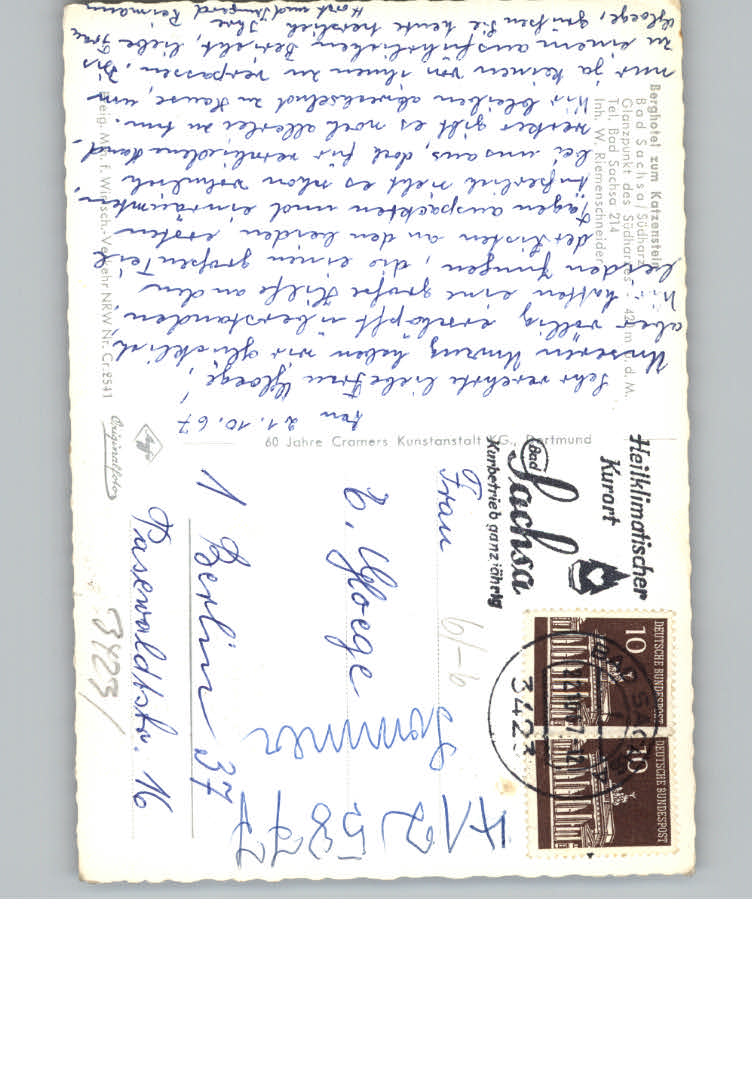 Berghotel zum Katzenstein
Bad Sachsa/Südharz
Glanzpunkt des Südharzes · 420 m ü. d. M.
Tel. Bad Sachsa 214
Inh. W. Riemenschneider
den 21.10.67
Sehr verehrte liebe Frau Gloege,
Unseren Umzug haben wir glücklich,
aber völlig erschöpft überstanden.
Wir hatten eine große Hilfe an den
beiden Jungen, die einen großen Teil
der Kisten an den beiden ersten
Tagen auspackten und einräumten.
Äußerlich sieht es schon wohnlich
bei uns aus, doch für verschiedene Hand-
werker gibt es noch allerlei zu tun.
Wir bleiben abwechselnd zu Hause, um
nur ja keinen von ihnen zu verpassen. Bis
zu einem ausführlichen Bericht, liebe Frau
Gloege, grüßen Sie heute herzlich Ihre
Horst und Irmgard Reimann
60 Jahre Cramers Kunstanstalt KG., Dortmund
Freig. Min. f. Wirtsch.-Verkehr NRW Nr. Cr. 2541
Agfa
Originalfoto
Heilklimatischer
Kurort
Bad
Sachsa
Kurbetrieb ganzjährig
DEUTSCHE BUNDESPOST
10
DEUTSCHE BUNDESPOST
10
BAD SACHSA
3423
Frau
C. Gloege
1 Berlin 37
Pasewaldtstr. 16
Sommer
412 58 77
6/-6
3423/